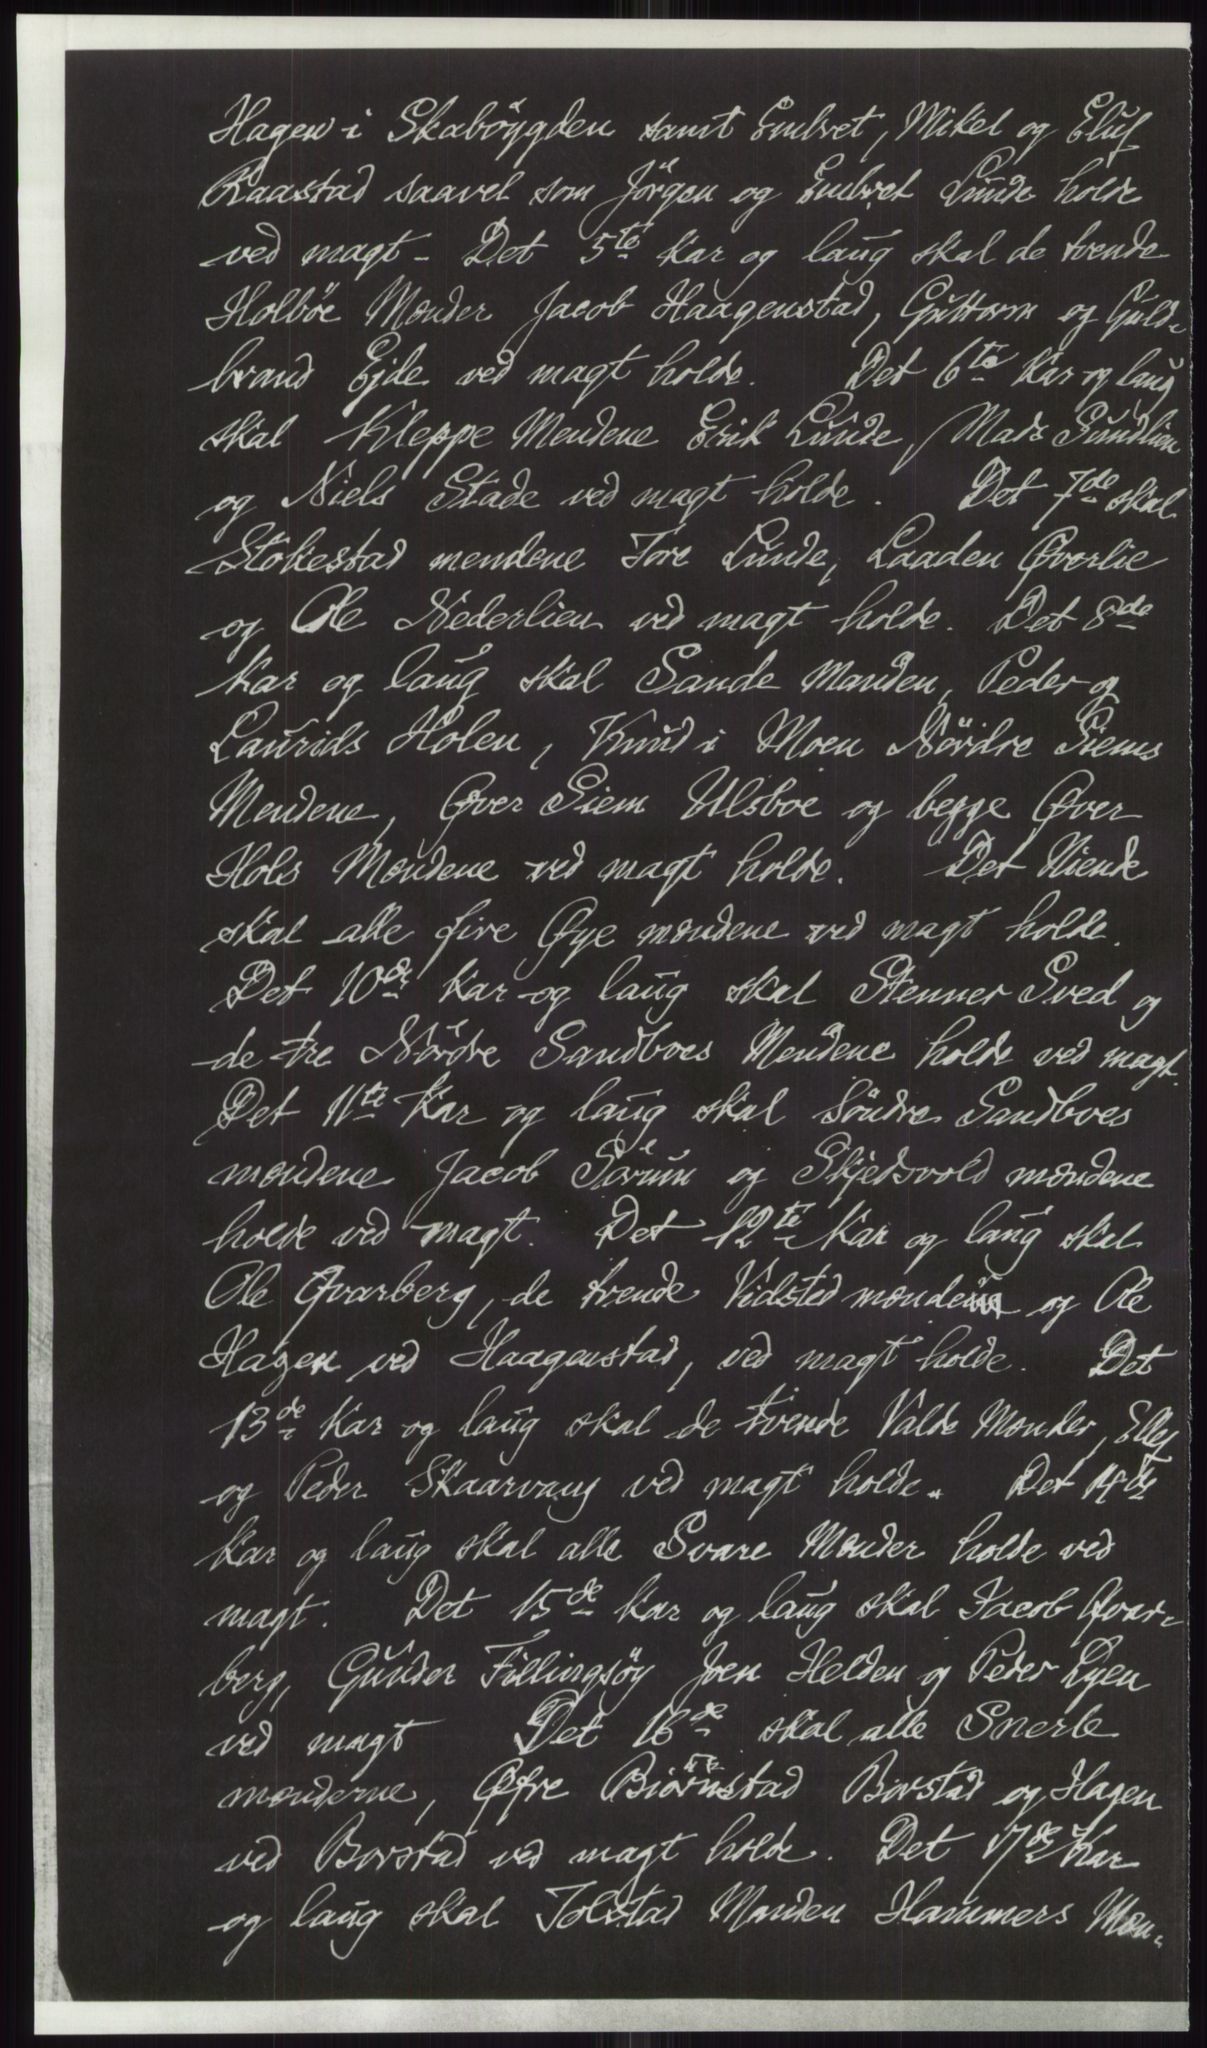 Hagen i Skabøygden samt Embret, Mikel og Eluf
Raastad saavel som Jörgen og Embret Lunde holde
ved magt - Det 5te Kar og laug skal de tvende
Holböe Mænder Jacob Haagenstad, Guttorm og Guld-
brand Ejde ved magt holde. Det 6te Kar og laug
skal Kleppe Mendene Erik Lunde, Mads Sundlien
og Niels Stade ved magt holde. Det 7de skal
Stokestad mendene Tore Lunde, Laaden Øverlie
og Ole Nederlien ved magt holde. Det 8de
Kar og laug skal Sande Manden, Peder og
Laurids Holen, Knud i Moen Nördre Siems
Mendene, Øver Siem Ulsboe og begge Øver
Hols Mændene ved magt holde. Det Niende
skal alle fire Øye mændene ved magt holde.
Det 10de Kar og laug skal Stenner Sved og
de tre Nördre Sandboes Mendene holde ved magt.
Det 11te Kar og laug skal söndre Sandboes
mændene Jacob Sörum og Skjedsvold mændene
holde ved magt. Det 12te Kar og laug skal
Ole Qvarberg, de trende Vidsted mændene og Ole
Hagen ved Haagenstad, ved magt holde. Det
13de Kar og laug skal de tvende Valde Mænder, Ellef
og Peder Skaarvang ved magt holde. Det 14de
Kar og laug skal alle Svare Mænder holde ved
magt. Det 15de Kar og laug skal Jacob Qvar-
berg, Gunder Fillingsöy Joen Helden og Peder Dyen
ved magt Det 16de skal alle Snerle
mænderne, Øfre Biörnstad Borstad og Hagen
ved Borstad ved magt holde. Det 17de Kar
og laug skal Tolstad Manden Hammers Mæn-